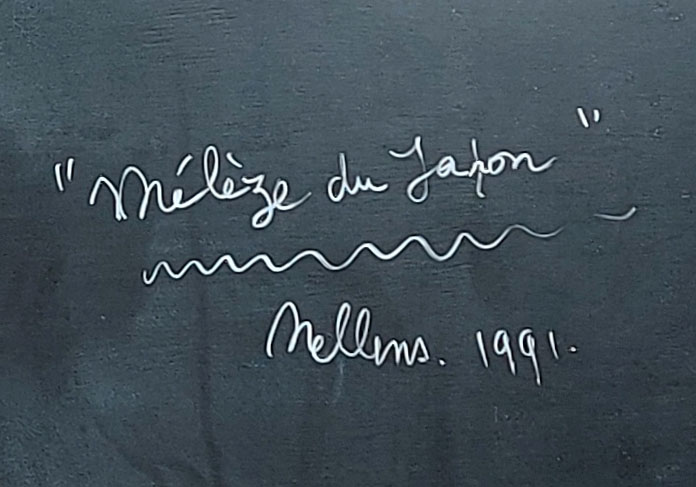 "Mélèze du Japon"
Nellens. 1991.